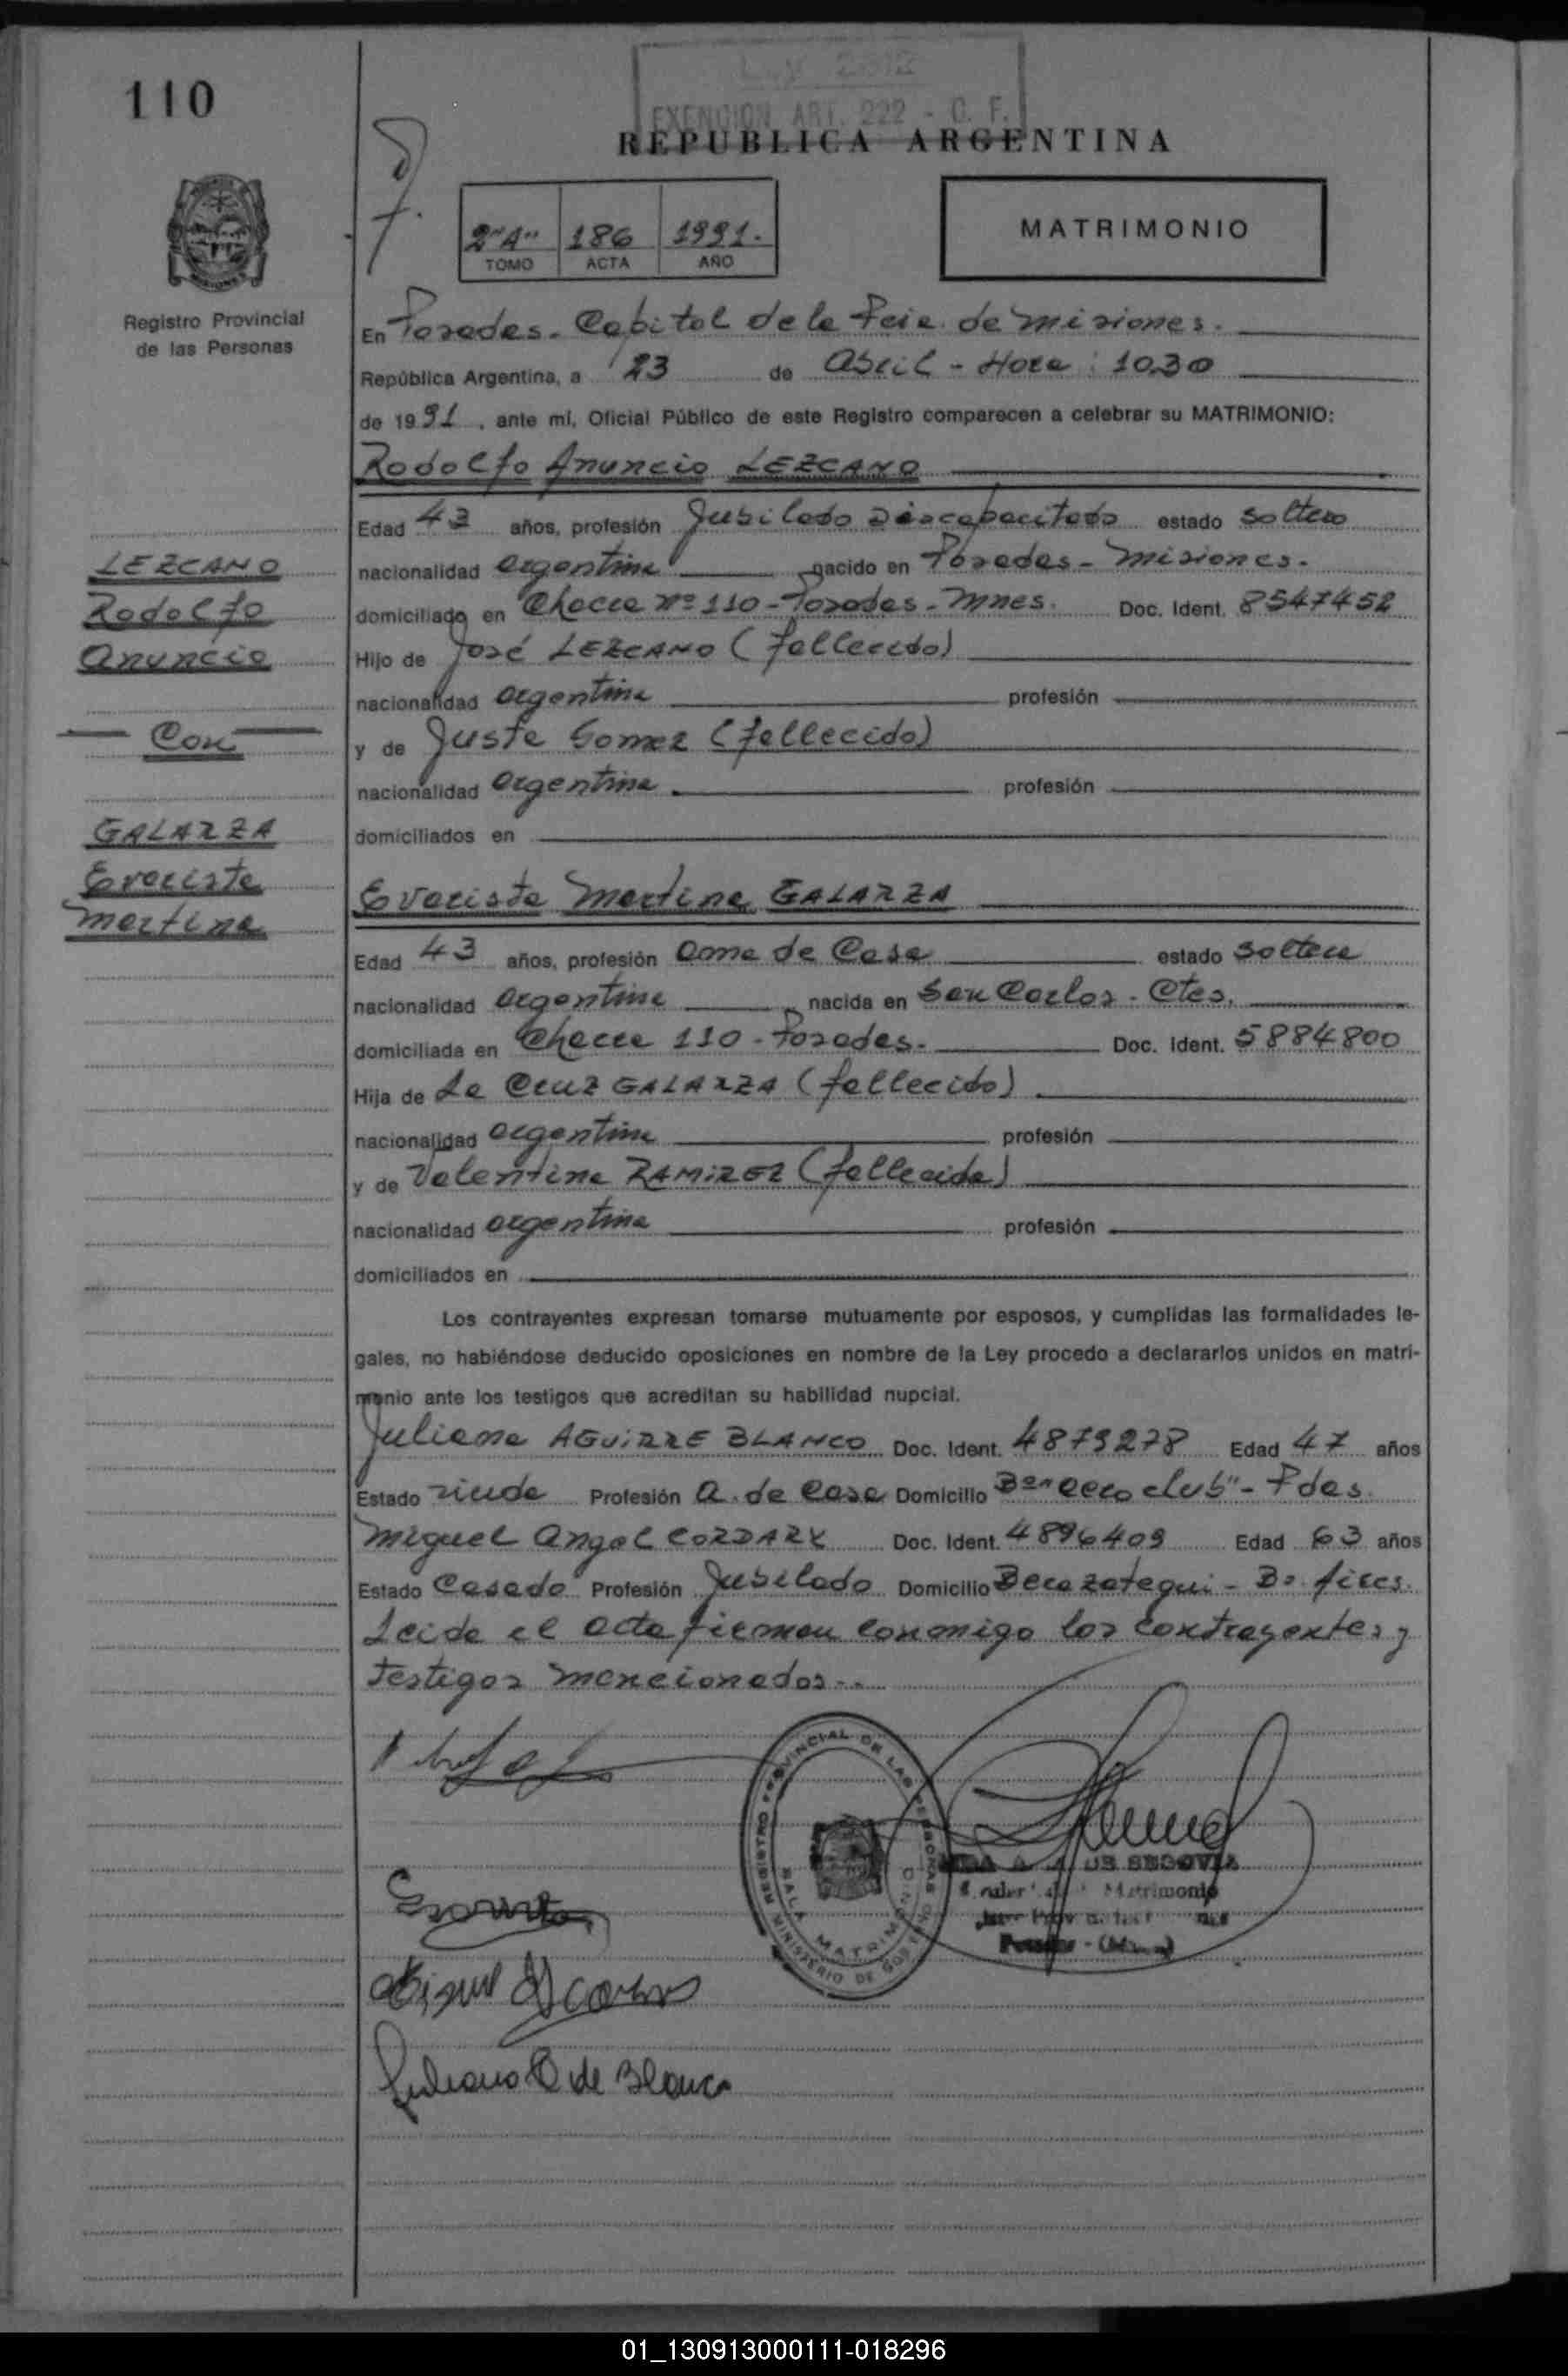 110
Ley 2312
EXENCION ART. 222 - C. F.
REPUBLICA ARGENTINA
2"A" 186 1991.
TOMO ACTA AÑO
MATRIMONIO
Registro Provincial
de las Personas
En Posadas. Capital de la Pcia. de Misiones.
República Argentina, a 23 de Abril - Hora: 10,30
de 1991, ante mi, Oficial Público de este Registro comparecen a celebrar su MATRIMONIO:
Rodolfo Anuncio LEZCANO
Edad 43 años, profesión Jubilado Discapacitado estado soltero
nacionalidad argentina nacido en Posadas - Misiones.
domiciliado en Chacra Nº 110 - Posadas - Mnes. Doc. Ident. 8547452
Hijo de José LEZCANO (fallecido)
nacionalidad argentina profesión
y de Justa Gomez (fallecido)
nacionalidad argentina. profesión
domiciliados en
LEZCANO
Rodolfo
Anuncio
Con
GALARZA
Evarista
Martina
Evarista Martina GALARZA
Edad 43 años, profesión Ama de Casa estado soltera
nacionalidad argentina nacida en San Carlos - Ctes.
domiciliada en Chacra 110 - Posadas. Doc. Ident. 5884800
Hija de La Cruz GALARZA (fallecido)
nacionalidad argentina profesión
y de Valentina RAMIREZ (fallecida)
nacionalidad argentina profesión
domiciliados en
Los contrayentes expresan tomarse mutuamente por esposos, y cumplidas las formalidades le-
gales, no habiéndose deducido oposiciones en nombre de la Ley procedo a declararlos unidos en matri-
monio ante los testigos que acreditan su habilidad nupcial.
Juliana AGUIRRE BLANCO Doc. Ident. 4879278 Edad 47 años
Estado viuda Profesión A. de Casa Domicilio Bº "Aero club" - Pdas.
Miguel Angel CORDARY Doc. Ident. 4896409 Edad 63 años
Estado Casado Profesión Jubilado Domicilio Berazategui - Bs. Aires.
Leida el acta firman conmigo los contrayentes y
testigos mencionados..
REGISTRO PROVINCIAL DE LAS PERSONAS
MINISTERIO DE GOBIERNO
SALA MATRIMONIO
DE SEGOVIA
Matrimonio
Posadas - (Mnes.)
Juliana A de Blanco
01_130913000111-018296